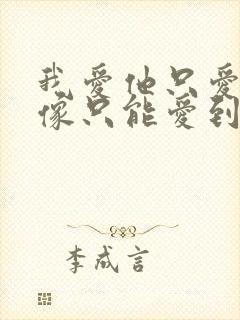 我愛他只愛
像只能愛到
李成言